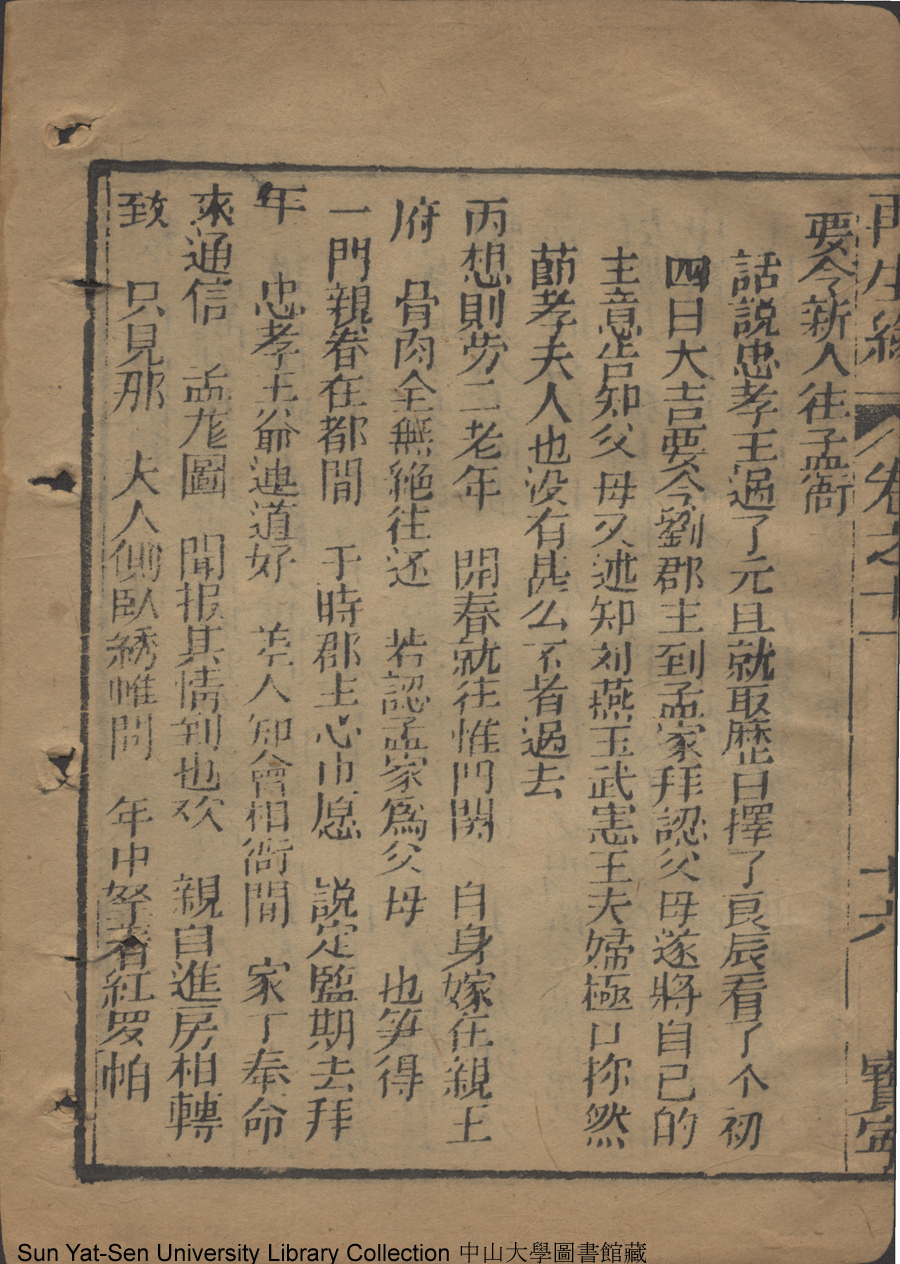 再生緣 卷之十一 十六 寳寧
要令新人往孟衙
話說忠孝王過了元旦就取歷日擇了良辰看了个初
四日大吉要令劉郡主到孟家拜認父母遂將自己的
主意告知父母又述知刘燕玉武憲王夫婦極口称然
節孝夫人也没有甚么不肯過去
丙想則劳二老年 開春就往惟門閗 自身嫁在親王
府 骨肉全無絶往还 若認孟家爲父母 也笋得
一門親眷在都間 于時郡主心中愿 説定監期去拜
年 忠孝王爺連道好 差人知會相衙間 家丁奉命
來通信 孟龙圖 聞报其情到也欢 親自進房相轉
致 只見那 夫人側臥綉帷間 年中拏着紅罗帕
Sun Yat-Sen University Library Collection 中山大學圖書館藏